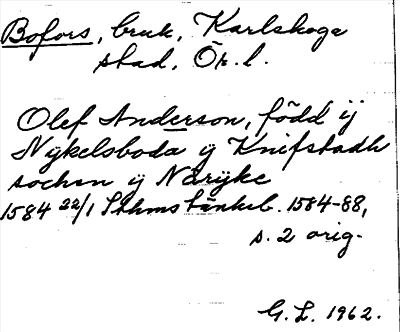 Bofors, bruk, Karlskoga
stad, Ör. l.
Olef Anderson, född ij
Nykelsboda ij Knifstadh
sochen ij Näryke
1584 22/1 Sthms tänkeb. 1584-88,
s. 2 orig.
G. L. 1962.